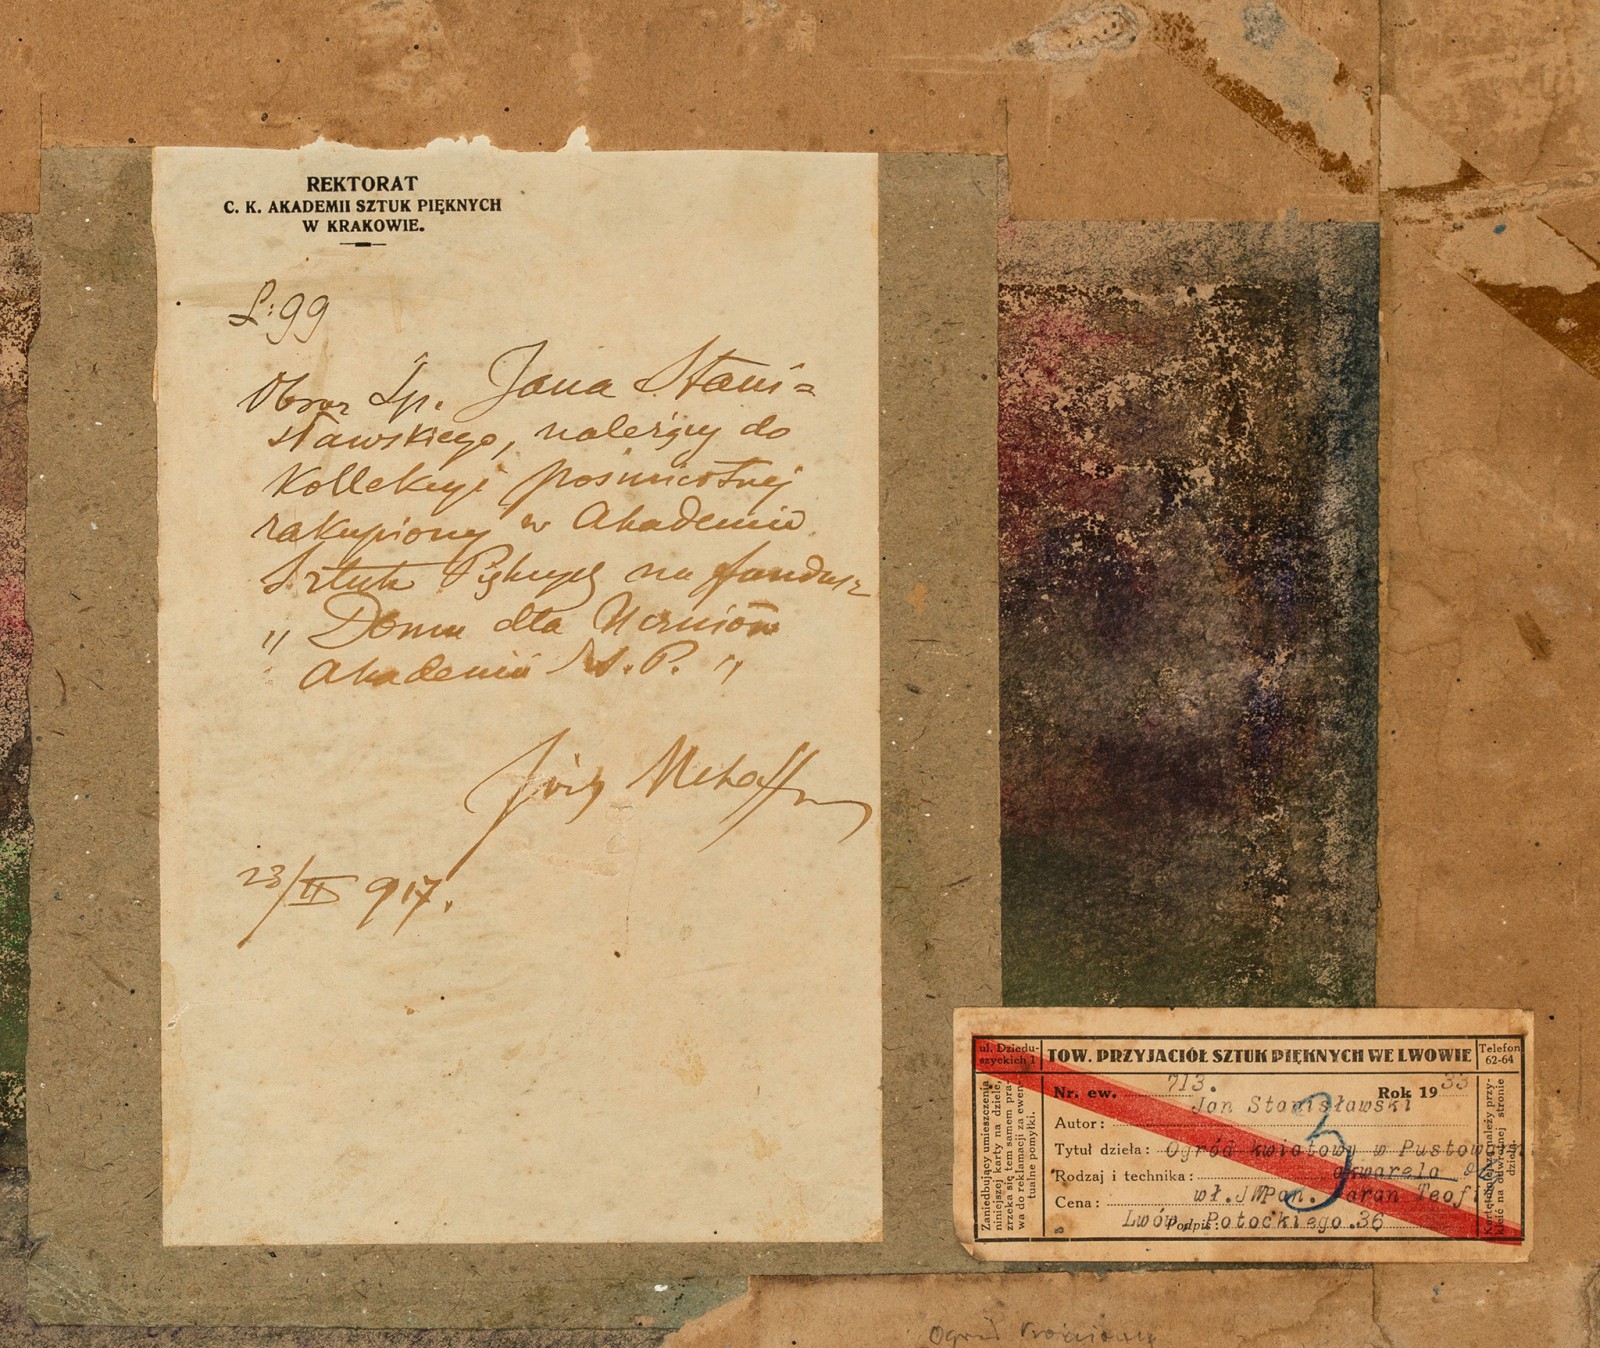 REKTORAT
C. K. AKADEMII SZTUK PIĘKNYCH
W KRAKOWIE.
L: 99
Obraz Śp. Jana Stani=
sławskiego, należący do
Kollekcyi pośmiertnej
zakupiony w Akademii
Sztuk Pięknych na fundusz
„ Domu dla Uczniów
Akademii S. P. "
Józef Mehoffer
23/II 917.
ul. Dziedu-
szyckich 1
TOW. PRZYJACIÓŁ SZTUK PIĘKNYCH WE LWOWIE
Telefon
62-64
Zaniedbujący umieszczenia
niniejszej karty na dziele,
zrzeka się tem samem pra-
wa do reklamacji za ewen-
tualne pomyłki.
Nr. ew. 713. Rok 1933
Autor: Jan Stanisławski
Tytuł dzieła: Ogród kwiatowy w
Rodzaj i technika: akwarela
Cena: wł. JWPan.
Lwów, Potockiego 36
Podpis:
3
Kartę niniejszą należy przy-
kleić na odwrotnej stronie
dzieła.
Ogród